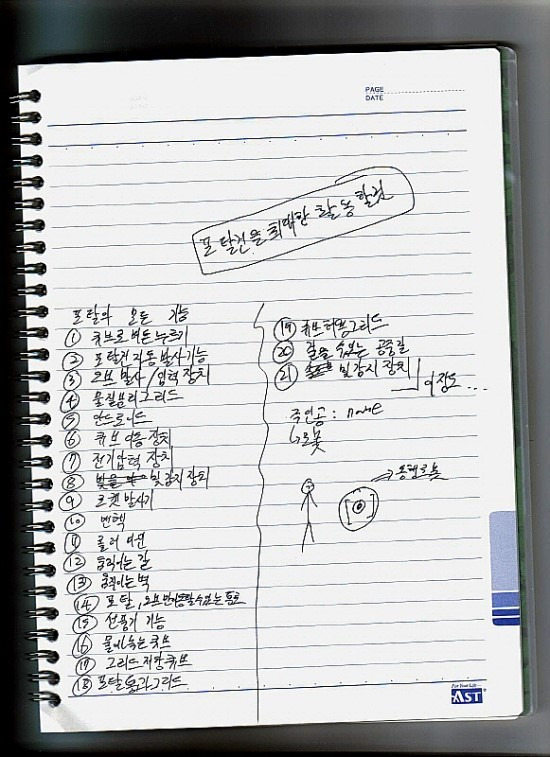 PAGE
DATE
포탈건을 최대한 활동할것
포탈의 모든 기능
① 큐브로 버튼누르기
② 포탈건 자동발사기능
③ 오브 발사/입력 장치
④ 물질분리그리드
⑤ 안드로이드
⑥ 큐브 이동 장치
⑦ 전기압력 장치
⑧ 빛감지 장치
⑨ 로켓 발사기
⑩ 벤텍
⑪
⑫ 움직이는 길
⑬ 움직이는벽
⑭ 포탈, 오브만이동할수있는 통로
⑮ 선풍기 기능
⑯ 물에녹는큐브
⑰ 그리드저항큐브
⑱ 포탈통과그리드
⑲ 큐브허용그리드
⑳ 걸을 수있는 공중길
㉑ 빛감지 장치
이정도...
주인공 : name
↳로봇
→동행로봇
For Your Life
AST